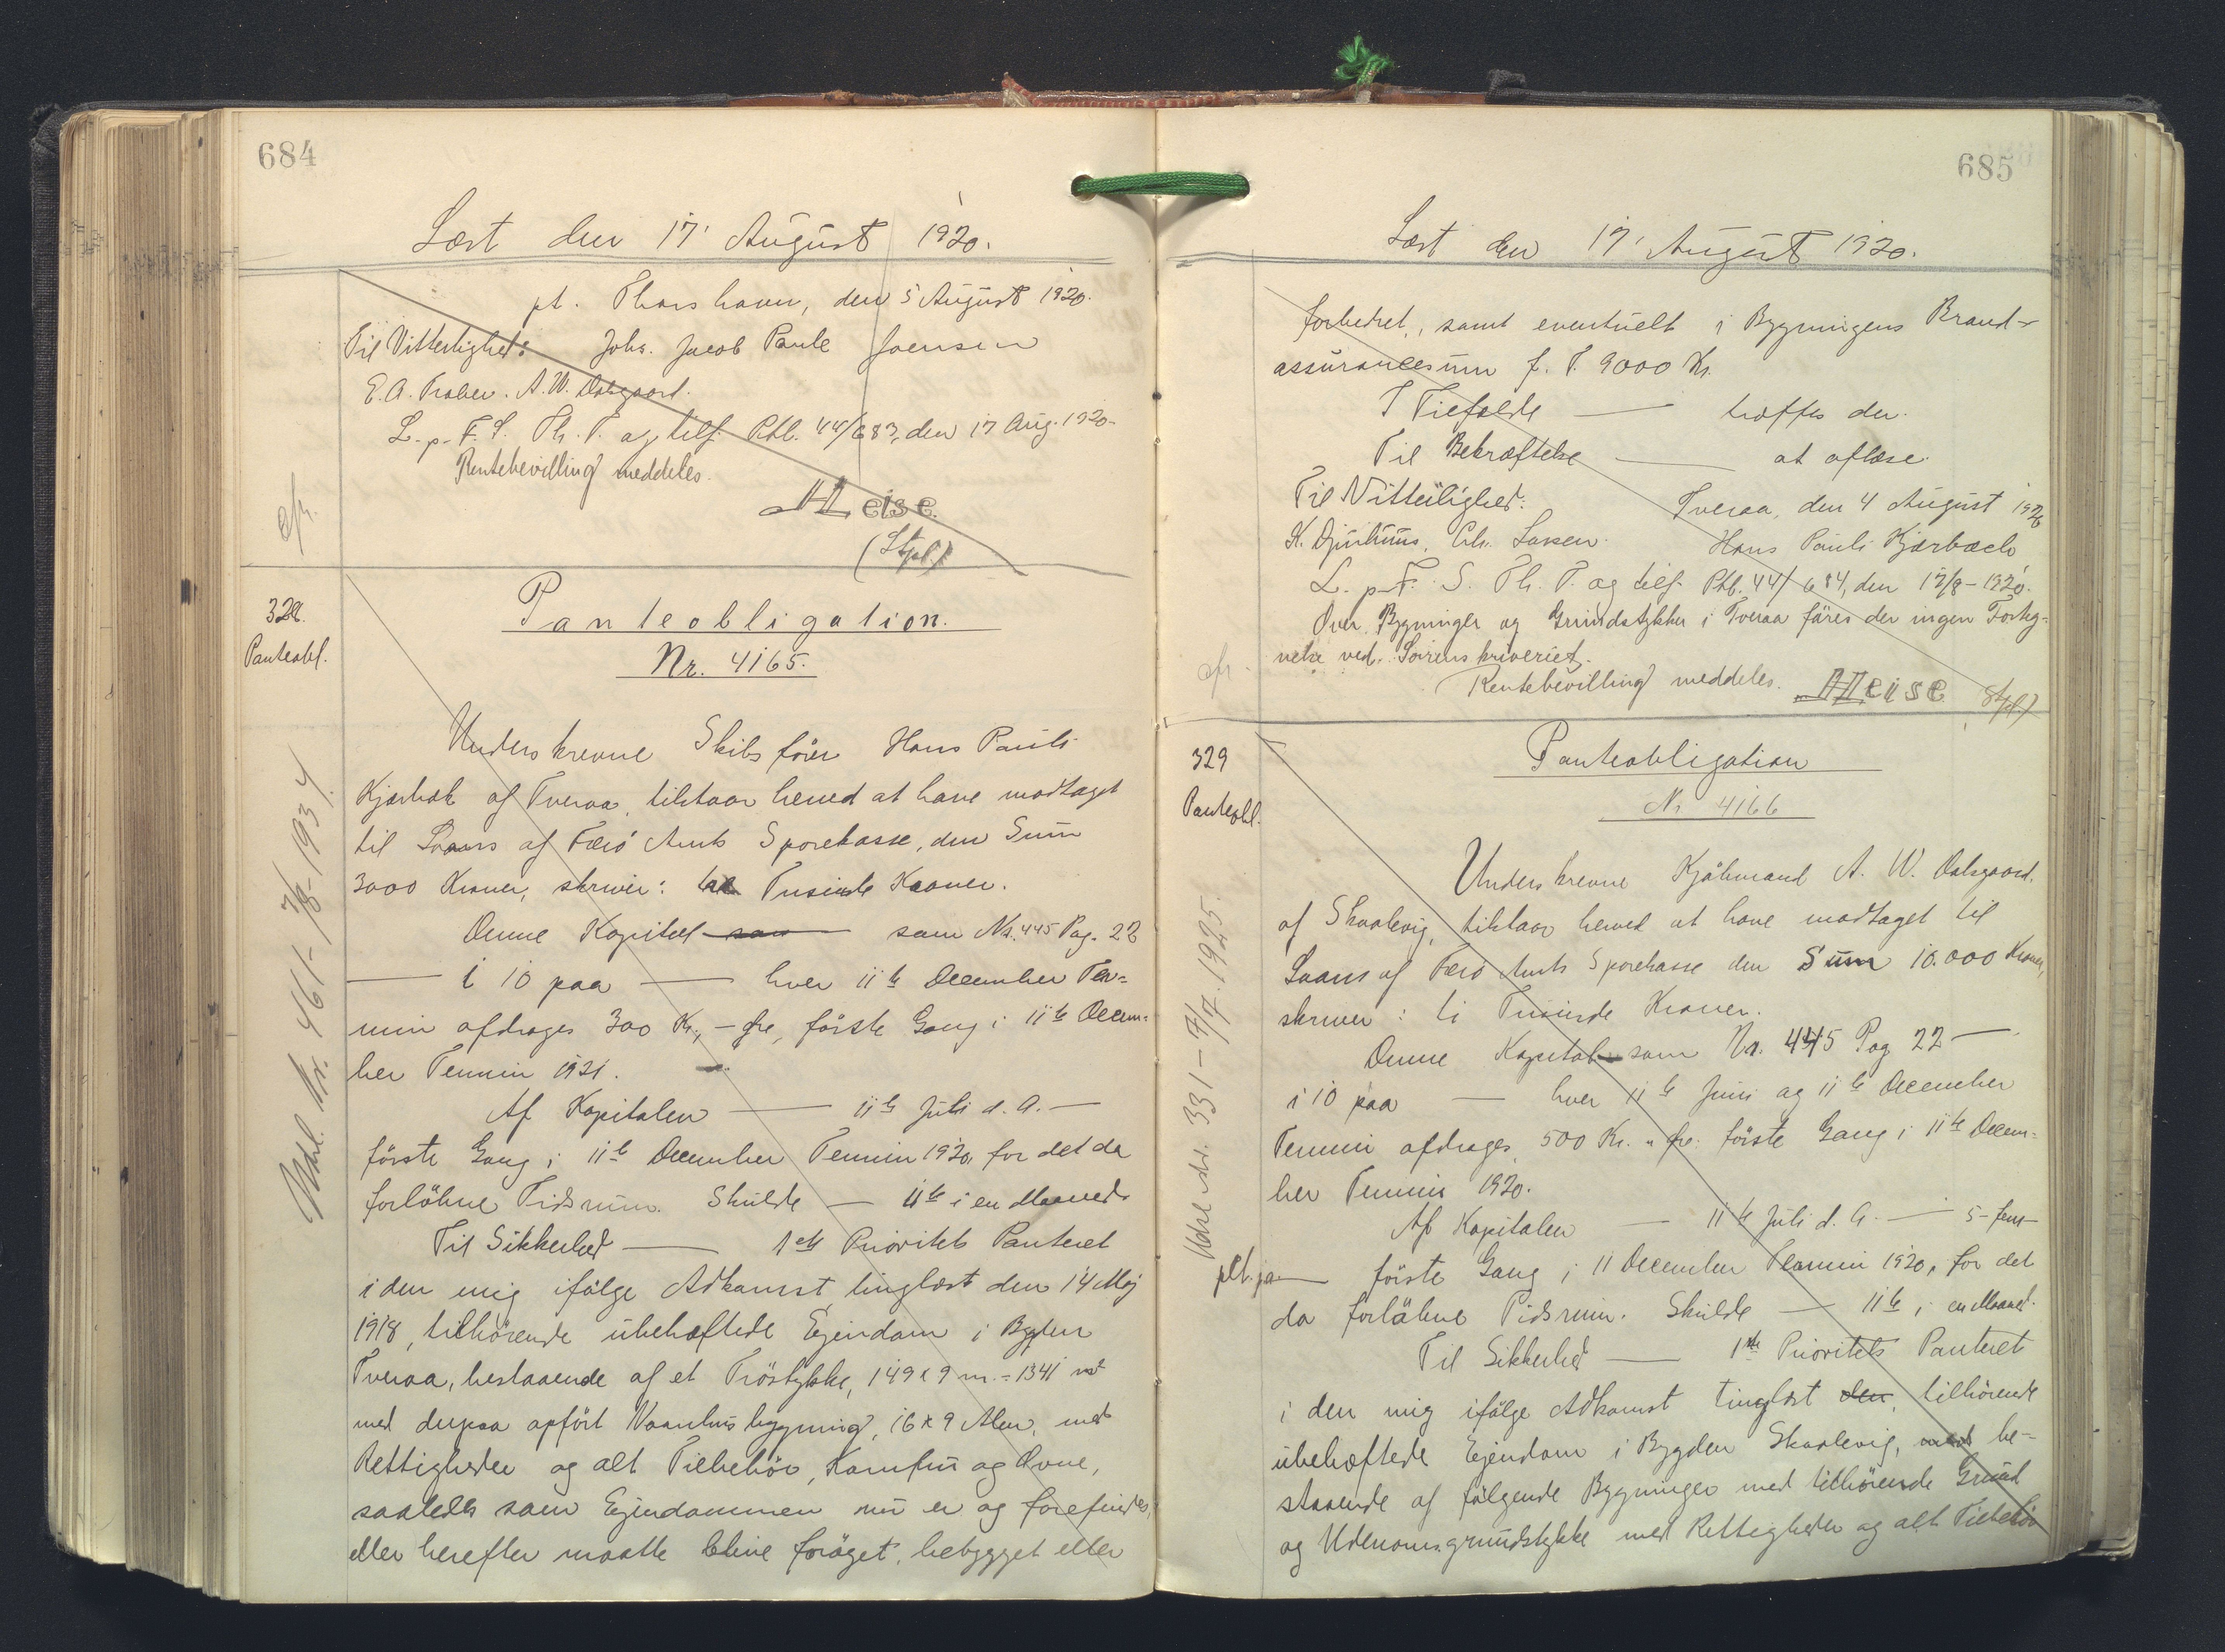 684
Læst den 17' August 1920.
pt. Thorshavn, den 5 August 1920.
Til Vitterlighed: Johs. Jacob Paule Joensen
E.A. A.W. Dalsgaard.
L. p. F. S. Th. T. og tilf. Ptbl. 44/683, den 17 Aug. 1920.
Rentebevilling meddeles.
Heise.
(Stpl.)
cfr.
328.
Panteobl.
Panteobligation.
Nr. 4165.
Underskrevne Skibsfører Hans Pauli
Kjærbæk af Tveraa, tilstaar herved at have modtaget
til Laans af Færø Amts Sparekasse, den Sum
3000 Kroner, skriver: tre Tusinde Kroner.
Denne Kapital som Nr. 445 Pag. 22
— i 10 paa — hver 11te December Ter-
min afdrages 300 Kr., - Øre, første Gang i 11te Decem-
ber Termin 1921.
Af Kapitalen — 11te Juli d. A. —
første Gang i 11te December Termin 1920, for det da
forløbne Tidsrum. Skulde — 11te i en Maaned
Til Sikkerhed — 1ste Prioritets Panteret
i den mig ifølge Adkomst tinglæst den 14 Maj
1918, tilhørende ubehæftede Ejendom i Bygden
Tveraa, bestaaende af et Trøstykke, 149 x 9 m. = 1341 m²
med derpaa opført Vaanhusbygning, 16 x 9 Alen, med
Rettigheder og alt Tilbehør, Komfur og Ovne,
saaledes som Ejendommen nu er og forefindes,
eller herefter maatte blive forøget, bebygget eller
Udsl. Nr. 461 - 7/8 - 1934.
685
Læst den 17' August 1920.
forbedret, samt eventuelt i Bygningens Brand-
assurancesum f. T. 9000 Kr.
I Tilfælde — træffes der.
Til Bekræftelse — at aflæse.
Til Vitterlighed: Tveraa, den 4 August 1920
K. Djurhuus, Chr. Hans Pauli Kjærbæck
L. p. F. S. Th. T. og tilf. Ptbl. 44/684, den 17/8 - 1920.
Over Bygninger og Grundstykker i Tveraa føres der ingen Forteg-
nelse ved Sorenskriveriet.
cfr.
Rentebevilling meddeles. Heise Stpl.)
329
Panteobl.
Panteobligation
Nr 4166
Underskrevne Kjøbmand A. W. Dalsgaard.
af Skaalevig, tilstaar herved at have modtaget til
Laans af Færø Amts Sparekasse den Sum 10.000 Kroner,
skriver: ti Tusinde Kroner.
Denne Kapital som Nr. 445 Pag 22 —
i 10 paa — hver 11te Juni og 11te December
Termin afdrages 500 Kr. " Øre. første Gang i 11te Decem-
ber Termin 1920.
Af Kapitalen — 11te Juli d. A. — 5 - fem -
pct. pa — første Gang i 11 December Termin 1920, for det
da forløbne Tidsrum. Skulde — 11te i en Maaned.
Til Sikkerhed — 1ste Prioritets Panteret
i den mig ifølge Adkomst tinglæst den, tilhørende
ubehæftede Ejendom i Bygden Skaalevig, med be-
staaende af følgende Bygninger med tilhørende Grund
og Udenomsgrundstykke med Rettigheder og alt Tilbehør
Udsl. Nr. 331 - 7/7. 1925.